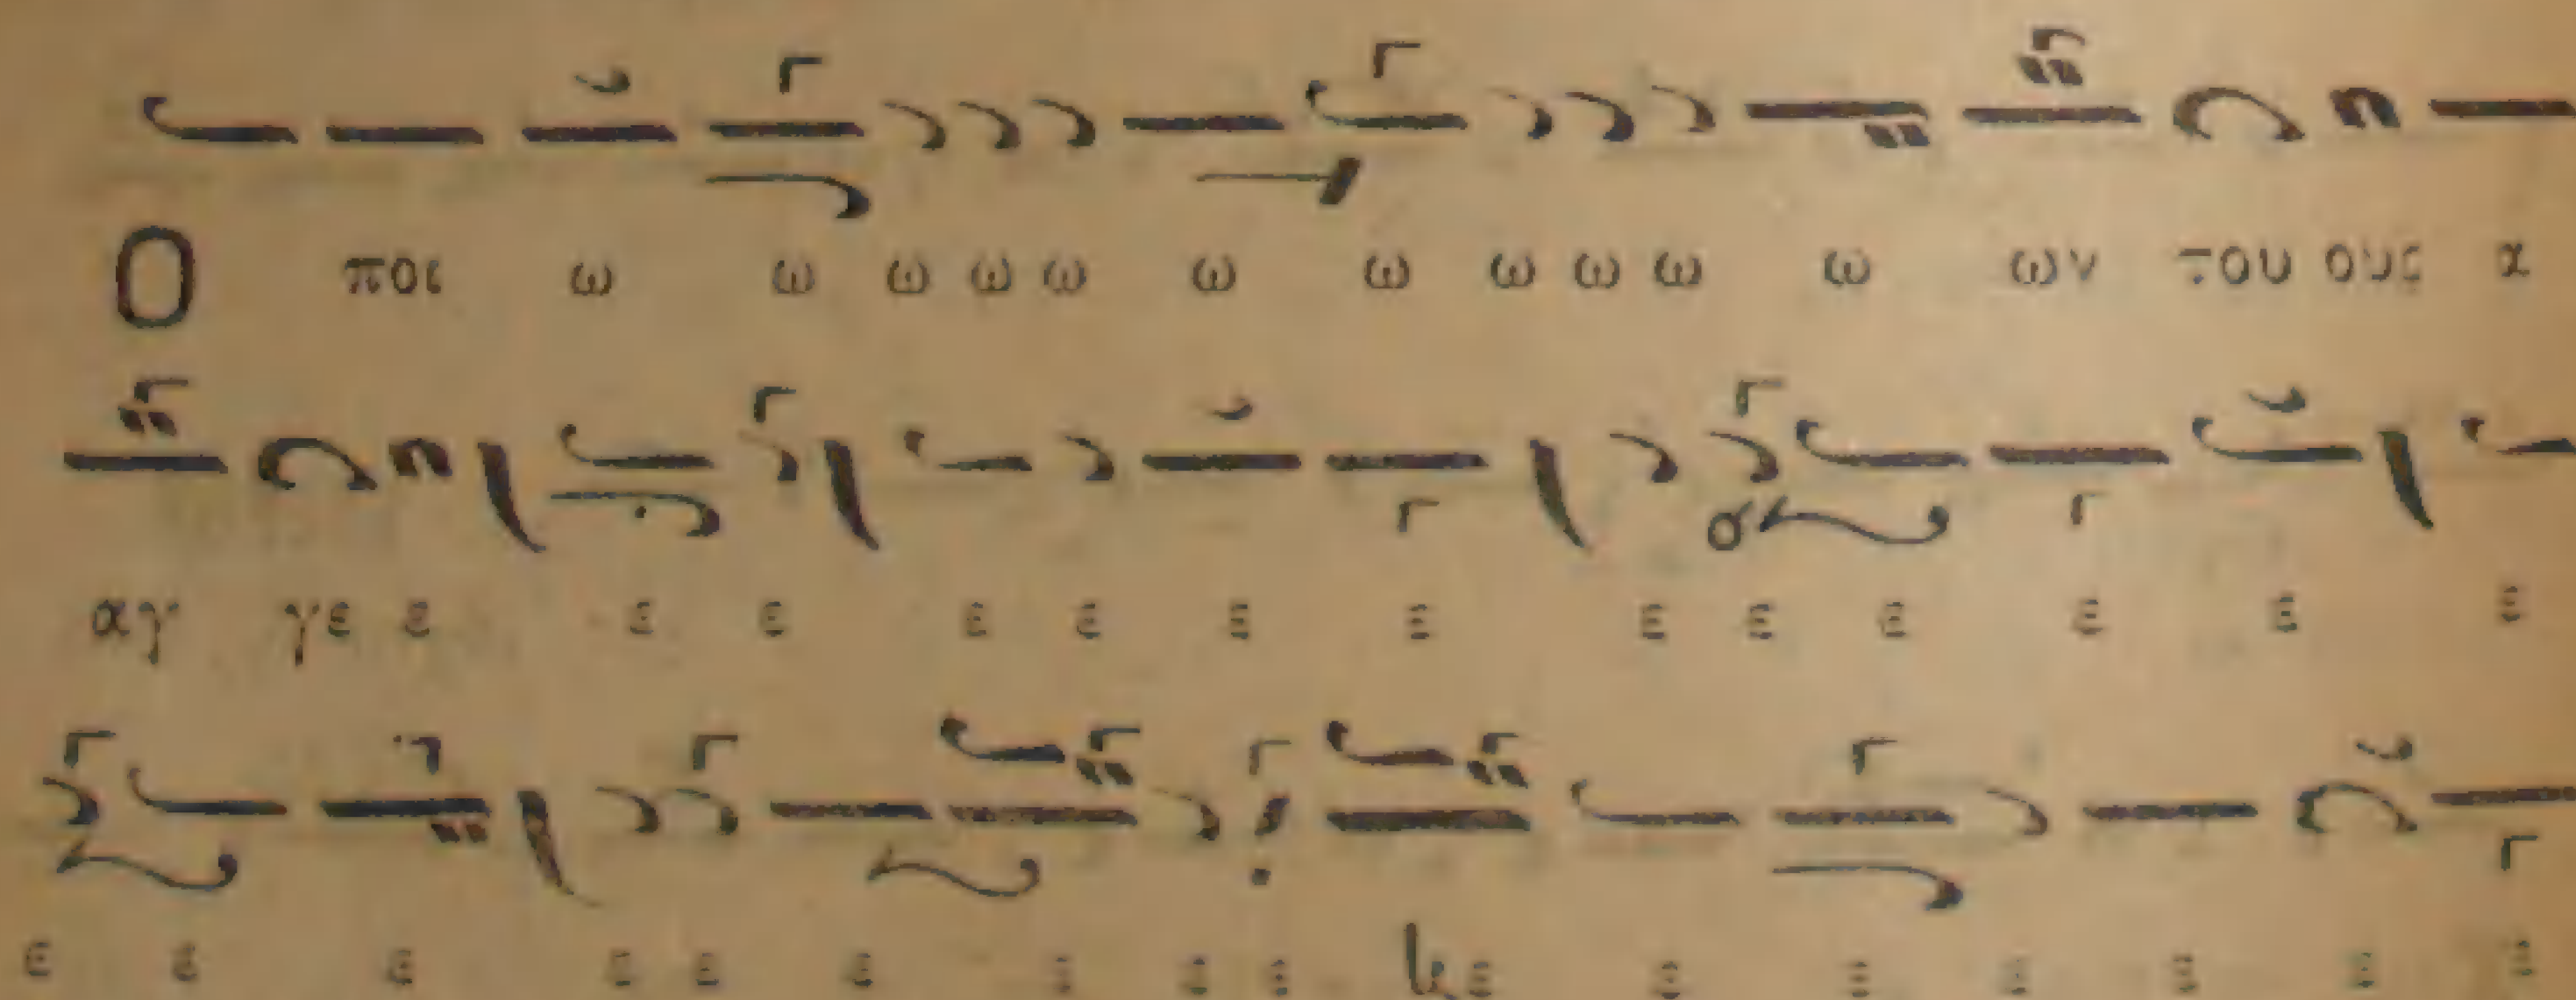 Ο ποι ω ω ω ω ω ω ω ω ω ω ω ων του ους α
αγ γε ε ε ε ε ε ε ε ε ε ε ε ε ε
ε ε ε ε ε ε ε ε ε ε ε ε ε ε ε ε